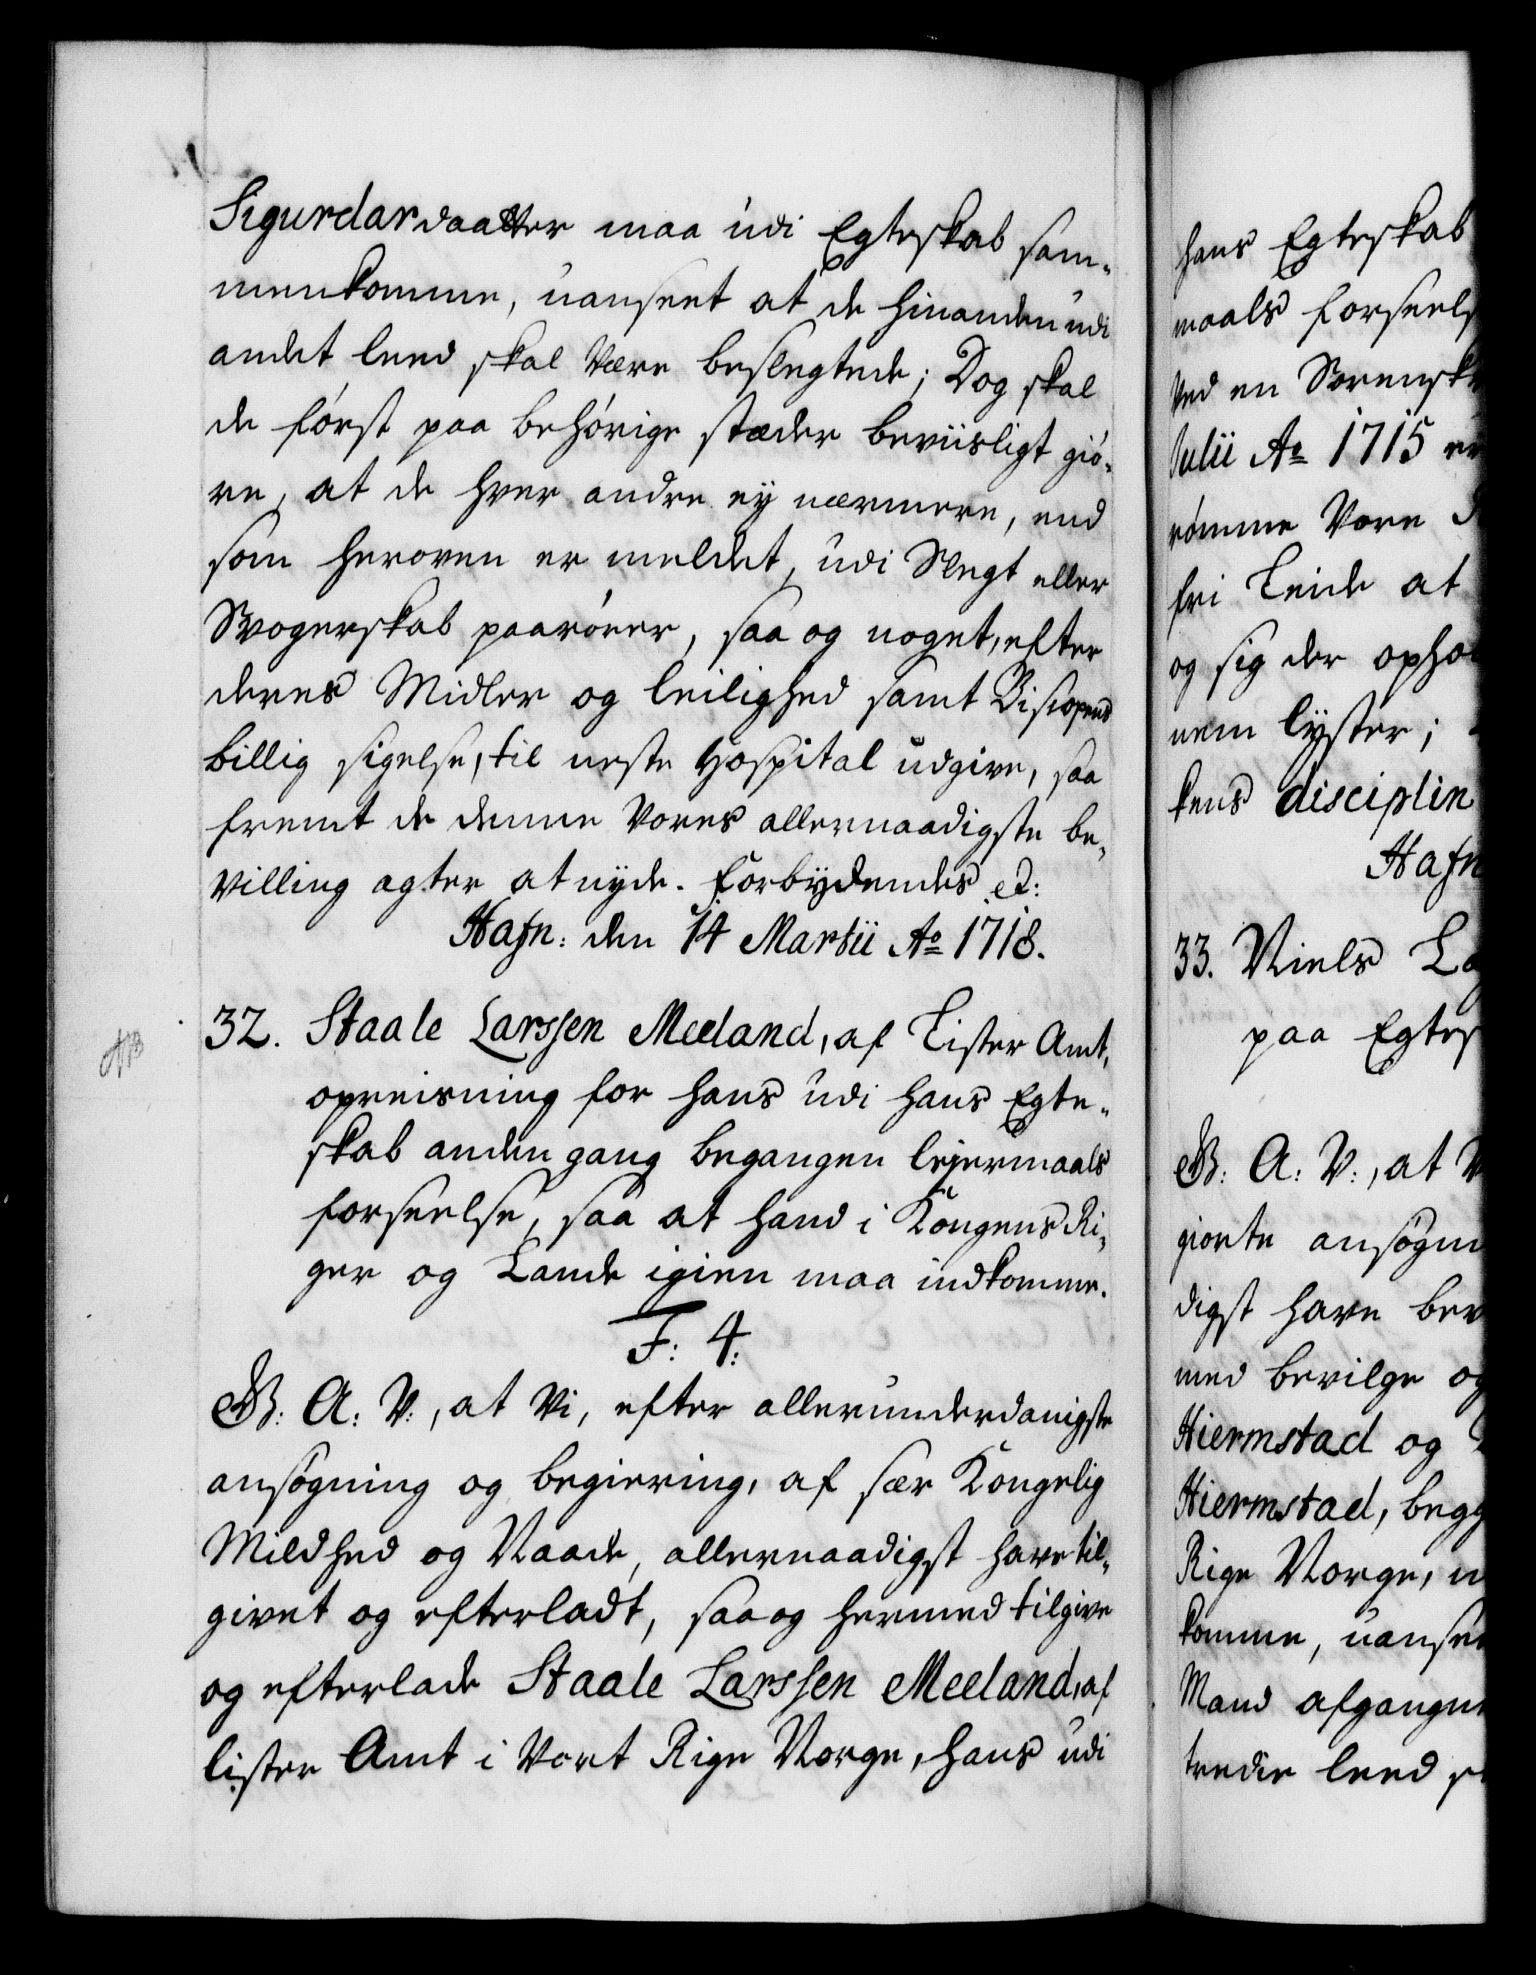 Sigurdardaatter maa udi Egteskab sam-
menkomme, uanseet at de hinanden udi
andet leed skal være beslegtede; Dog skal
de først paa behørige stæder beviisligt giø-
re, at de hver andre ey nærmere, end
som heroven er meldet, udi Slegt eller
Svogerskab paarører, saa og noget, efter
deres Midler og leilighed samt Biscopens
billig sigelse, til neste Hospital udgive, saa
fremt de denne Vores allernaadigste be-
villing agter at nyde. Forbydendes et:
Hafn: den 14 Martii Ao 1718.
32. Staale Larssen Meeland, af Lister Amt,
opreisning for hans udi hans Egte-
skab anden gang begangen lejermaals
forseelse, saa at hand i Kongens Ri-
ger og Lande igien maa indkomme.
F: 4:
G: A: V:, at Vi, efter allerunderdanigste
ansøgning og begiering, af sær Kongelig
Mildhed og Naade, allernaadigst have til-
givet og efterladt, saa og hermed tilgive
og efterlade Staale Larssen Meeland, af
lister Amt i Vort Rige Norge, hans udi
hans Egteskab
maals forseels
ved en Sorensk
Julii Ao 1715 er
rømme Vore
fri Leide at
og sig der opho
nem lyster;
kens disciplin
Hafn
33. Niels La
paa Egtes
G: A: V:, at V
giorte ansøgn
digst have bev
med bevilge og
Hiermstad og
Hiermstad, begg
Rige Norge, u
komme, uansee
Mand afgangn
tredie leed s